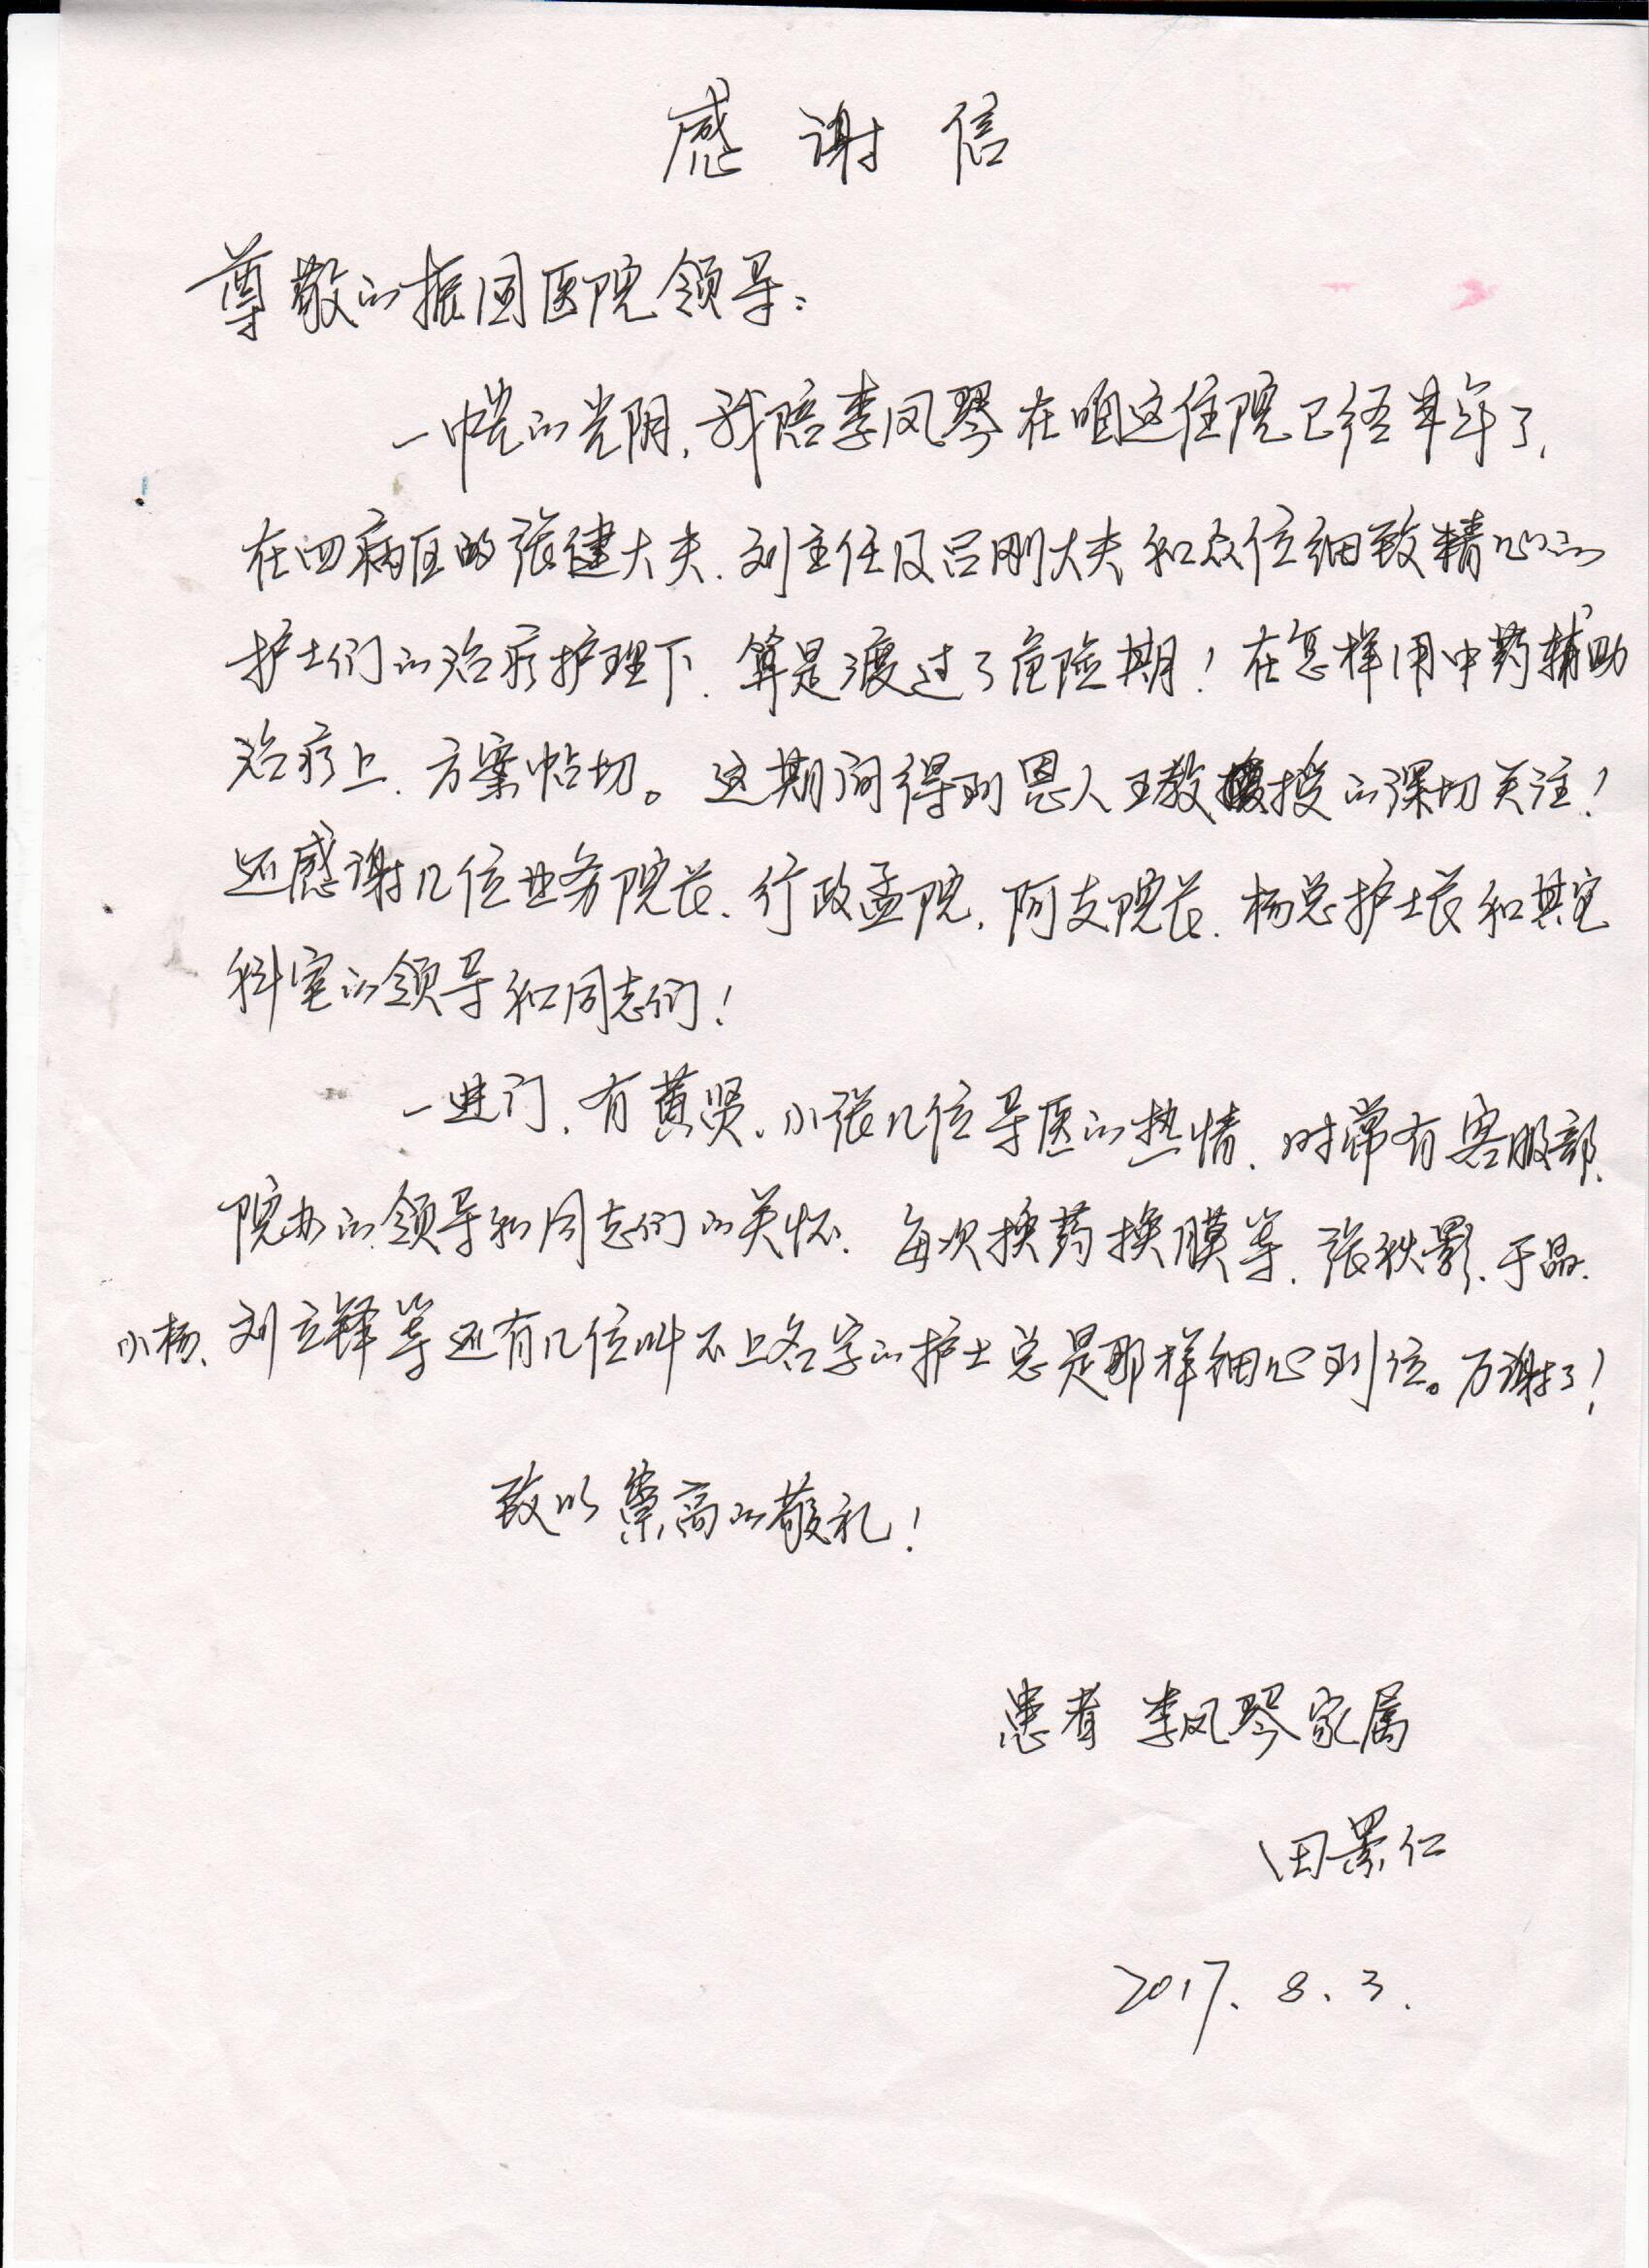 感谢信
尊敬的振国医院领导:
一恍的光阴,我陪李凤琴在咱这住院已经半年了,
在四病区的张健大夫、刘主任及吕刚大夫和众位细致精心的
护士们的治疗护理下、算是渡过了危险期!在怎样用中药辅助
治疗上、方案帖切。这期间得到恩人王教授的深切关注!
还感谢几位业务院长、行政孟院、阿支院长、杨总护士长和其它
科室的领导和同志们!
一进门、有黄贤、小张几位导医的热情、时常有客服部、
院办的领导和同志们的关怀、每次换药换膜等、张秋影、于晶、
小杨、刘立铎等还有几位叫不上名字的护士总是那样细心到位。万谢了!
致以崇高的敬礼!
患者 李凤琴家属
田景仁
2017.8.3.